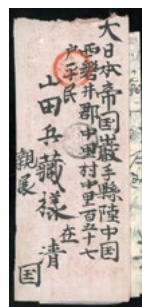 大日本帝国巌手縣陸中国
西磐井郡中里村中里百五十七
平民
山田兵藏様
親展
在
清
国